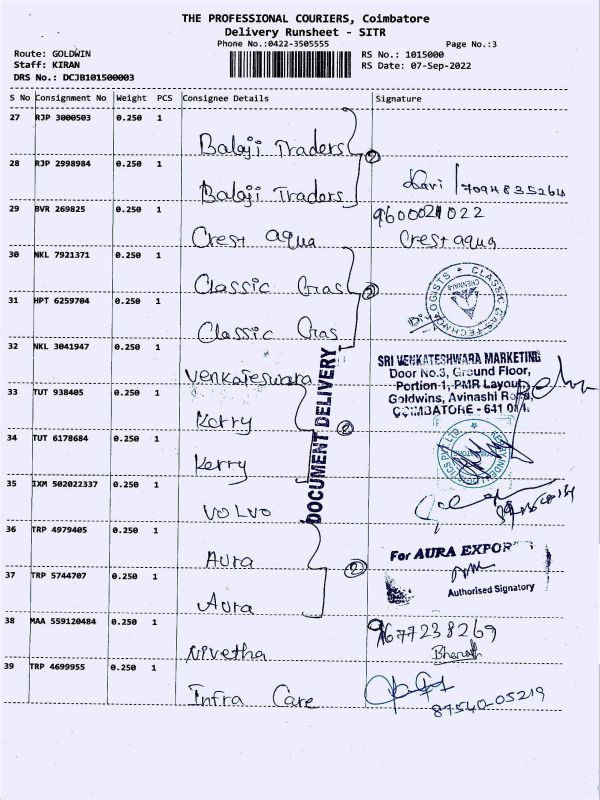 THE PROFESSIONAL COURIERS, Coimbatore
Delivery Runsheet - SITR
Phone No.:0422-3505555 Page No.:3
Route: GOLDWIN RS No.: 1015000
Staff: KIRAN RS Date: 07-Sep-2022
DRS No.: DCJB101500003
S No Consignment No Weight PCS Consignee Details Signature
27 RJP 3000503 0.250 1
Balaji Traders
2
28 RJP 2998984 0.250 1
Balaji Traders
Ravi 7094835264
29 BVR 269825 0.250 1
9600021022
Crest aqua Crest aqua
30 NKL 7921371 0.250 1
Classic Gas
2
CLASSIC GAS TECHNOLOGISTS
CHENNAI
31 HPT 6259704 0.250 1
Classic Gas
32 NKL 3041947 0.250 1
Venkateswara
SRI VENKATESHWARA MARKETING
Door No.3, Ground Floor,
Portion-1, PMR Layout,
Goldwins, Avinashi Road,
COIMBATORE - 641 014.
33 TUT 938405 0.250 1
Kerry
2
DOCUMENT DELIVERY
34 TUT 6178684 0.250 1
Kerry
35 IXM 502022337 0.250 1
VOLVO
36 TRP 4979405 0.250 1
Aura
2
For AURA EXPOR
Authorised Signatory
37 TRP 5744707 0.250 1
Aura
38 MAA 559120484 0.250 1
9677238269
Nivetha Bharath
39 TRP 4699955 0.250 1
Infra Care
87540-05219